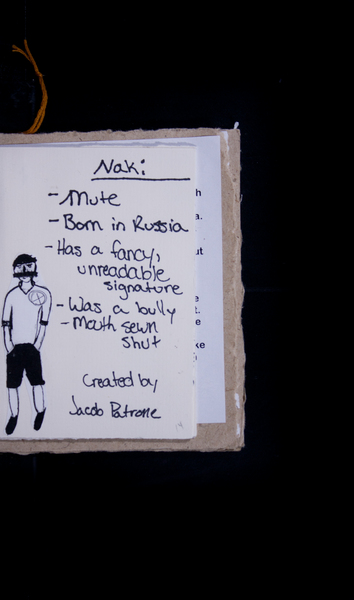 Naki
- Mute
- Born in Russia
- Has a fancy,
unreadable
signature
- Was a bully
- Mouth sewn
shut
Created by
Jacob Patrone